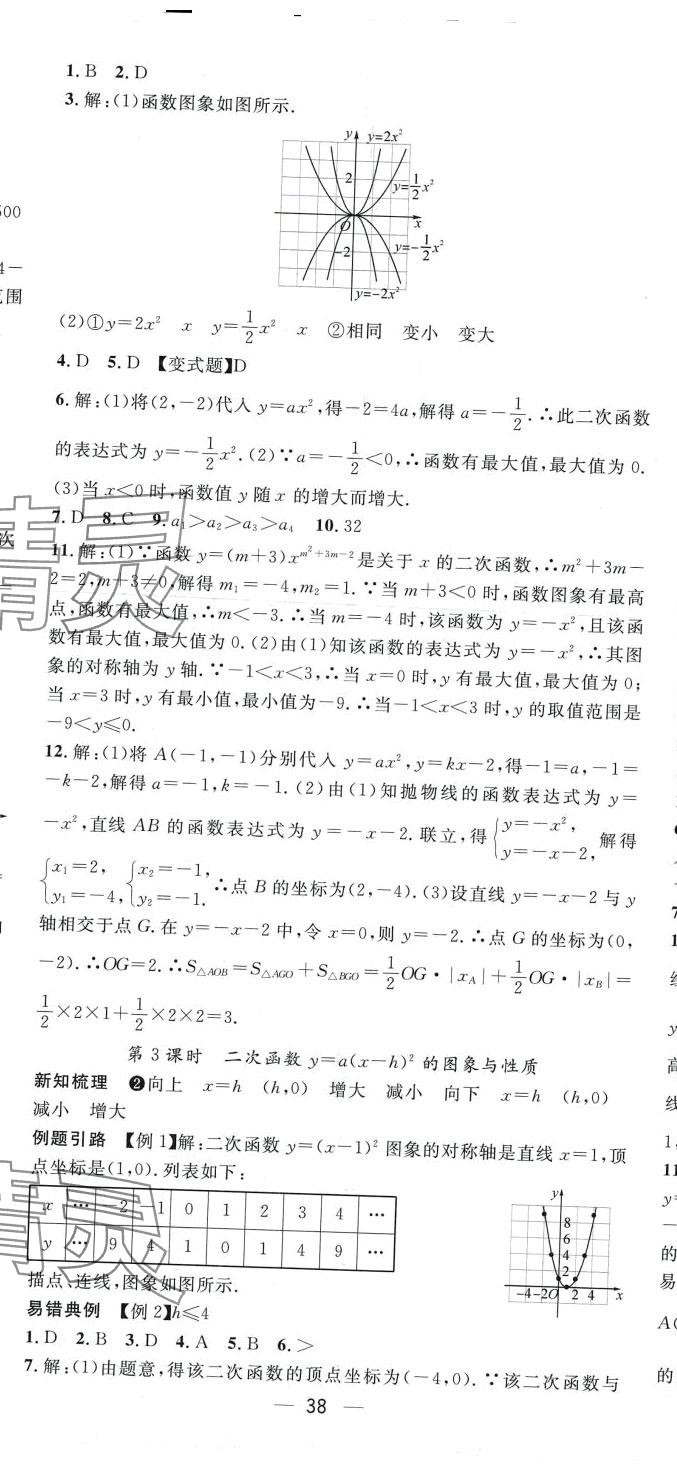 1. B 2. D
3. 解:(1)函数图象如图所示.
y y=2x²
2
y=1/2x²
O x
-2 y=-1/2x²
y=-2x²
(2)①y=2x² x y=1/2x² x ②相同 变小 变大
4. D 5. D 【变式题】D
6. 解:(1)将(2,-2)代入 y=ax²,得-2=4a,解得 a=-1/2.∴此二次函数
的表达式为 y=-1/2x².(2)∵a=-1/2<0,∴函数有最大值,最大值为 0.
(3)当 x<0 时,函数值 y 随 x 的增大而增大.
7. D 8. C 9. a₁>a₂>a₃>a₄ 10. 32
11. 解:(1)∵函数 y=(m+3)x^(m²+3m-2) 是关于 x 的二次函数,∴m²+3m-
2=2,m+3≠0,解得 m₁=-4,m₂=1.∵当 m+3<0 时,函数图象有最高
点,函数有最大值,∴m<-3.∴当 m=-4 时,该函数为 y=-x²,且该函
数有最大值,最大值为 0.(2)由(1)知该函数的表达式为 y=-x²,∴其图
象的对称轴为 y 轴.∵-1<x<3,∴当 x=0 时,y 有最大值,最大值为 0;
当 x=3 时,y 有最小值,最小值为-9.∴当-1<x<3 时,y 的取值范围是
-9<y≤0.
12. 解:(1)将 A(-1,-1)分别代入 y=ax²,y=kx-2,得-1=a,-1=
-k-2,解得 a=-1,k=-1.(2)由(1)知抛物线的函数表达式为 y=
-x²,直线 AB 的函数表达式为 y=-x-2.联立,得{y=-x²,y=-x-2,解得
{x₁=2,y₁=-4,{x₂=-1,y₂=-1.∴点 B 的坐标为(2,-4).(3)设直线 y=-x-2 与 y
轴相交于点 G.在 y=-x-2 中,令 x=0,则 y=-2.∴点 G 的坐标为(0,
-2).∴OG=2.∴S△AOB=S△AGO+S△BGO=1/2OG·|xA|+1/2OG·|xB|=
1/2×2×1+1/2×2×2=3.
第 3 课时 二次函数 y=a(x-h)² 的图象与性质
新知梳理 ❷向上 x=h (h,0) 增大 减小 向下 x=h (h,0)
减小 增大
例题引路 【例 1】解:二次函数 y=(x-1)² 图象的对称轴是直线 x=1,顶
点坐标是(1,0).列表如下:
x … -2 -1 0 1 2 3 4 …
y … 9 4 1 0 1 4 9 …
y
8
6
4
2
-4 -2 O 2 4 x
描点、连线,图象如图所示.
易错典例 【例 2】h≤4
1. D 2. B 3. D 4. A 5. B 6. >
7. 解:(1)由题意,得该二次函数的顶点坐标为(-4,0).∵该二次函数与
— 38 —
精灵